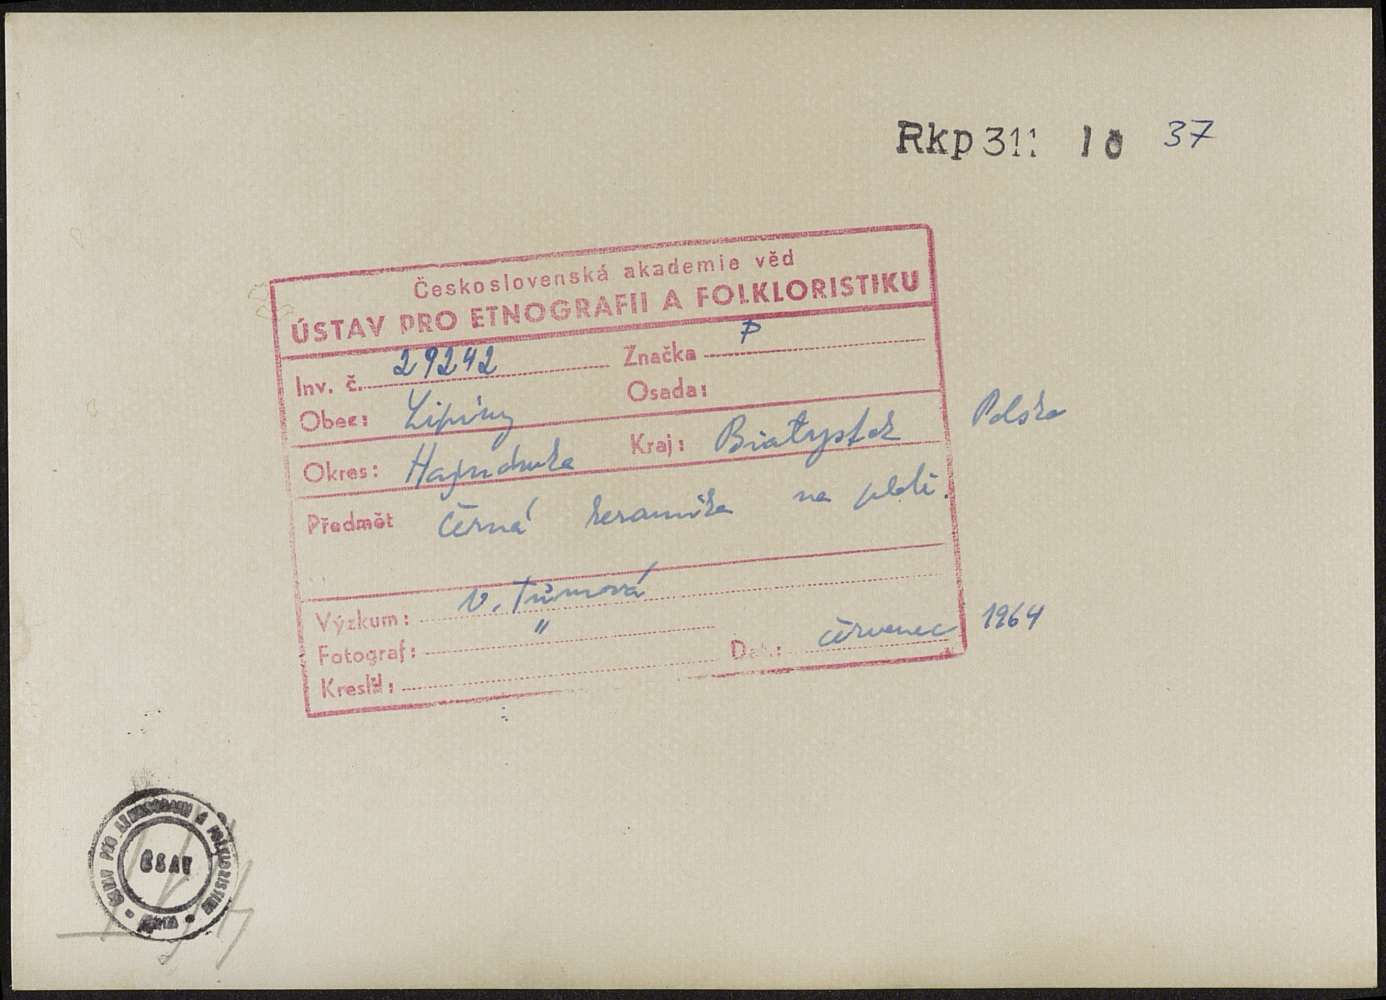 Rkp 311 10 37
Československá akademie věd
ÚSTAV PRO ETNOGRAFII A FOLKLORISTIKU
Inv. č. 29242 Značka P
Obec: Lipiny Osada:
Okres: Hajnówka Kraj: Białystok Polsko
Předmět černá keramika na plotě.
Výzkum: V. Tůmová
Fotograf: "
Dat.: červenec 1964
Kreslil:
ÚSTAV PRO ETNOGRAFII A FOLKLORISTIKU
ČSAV